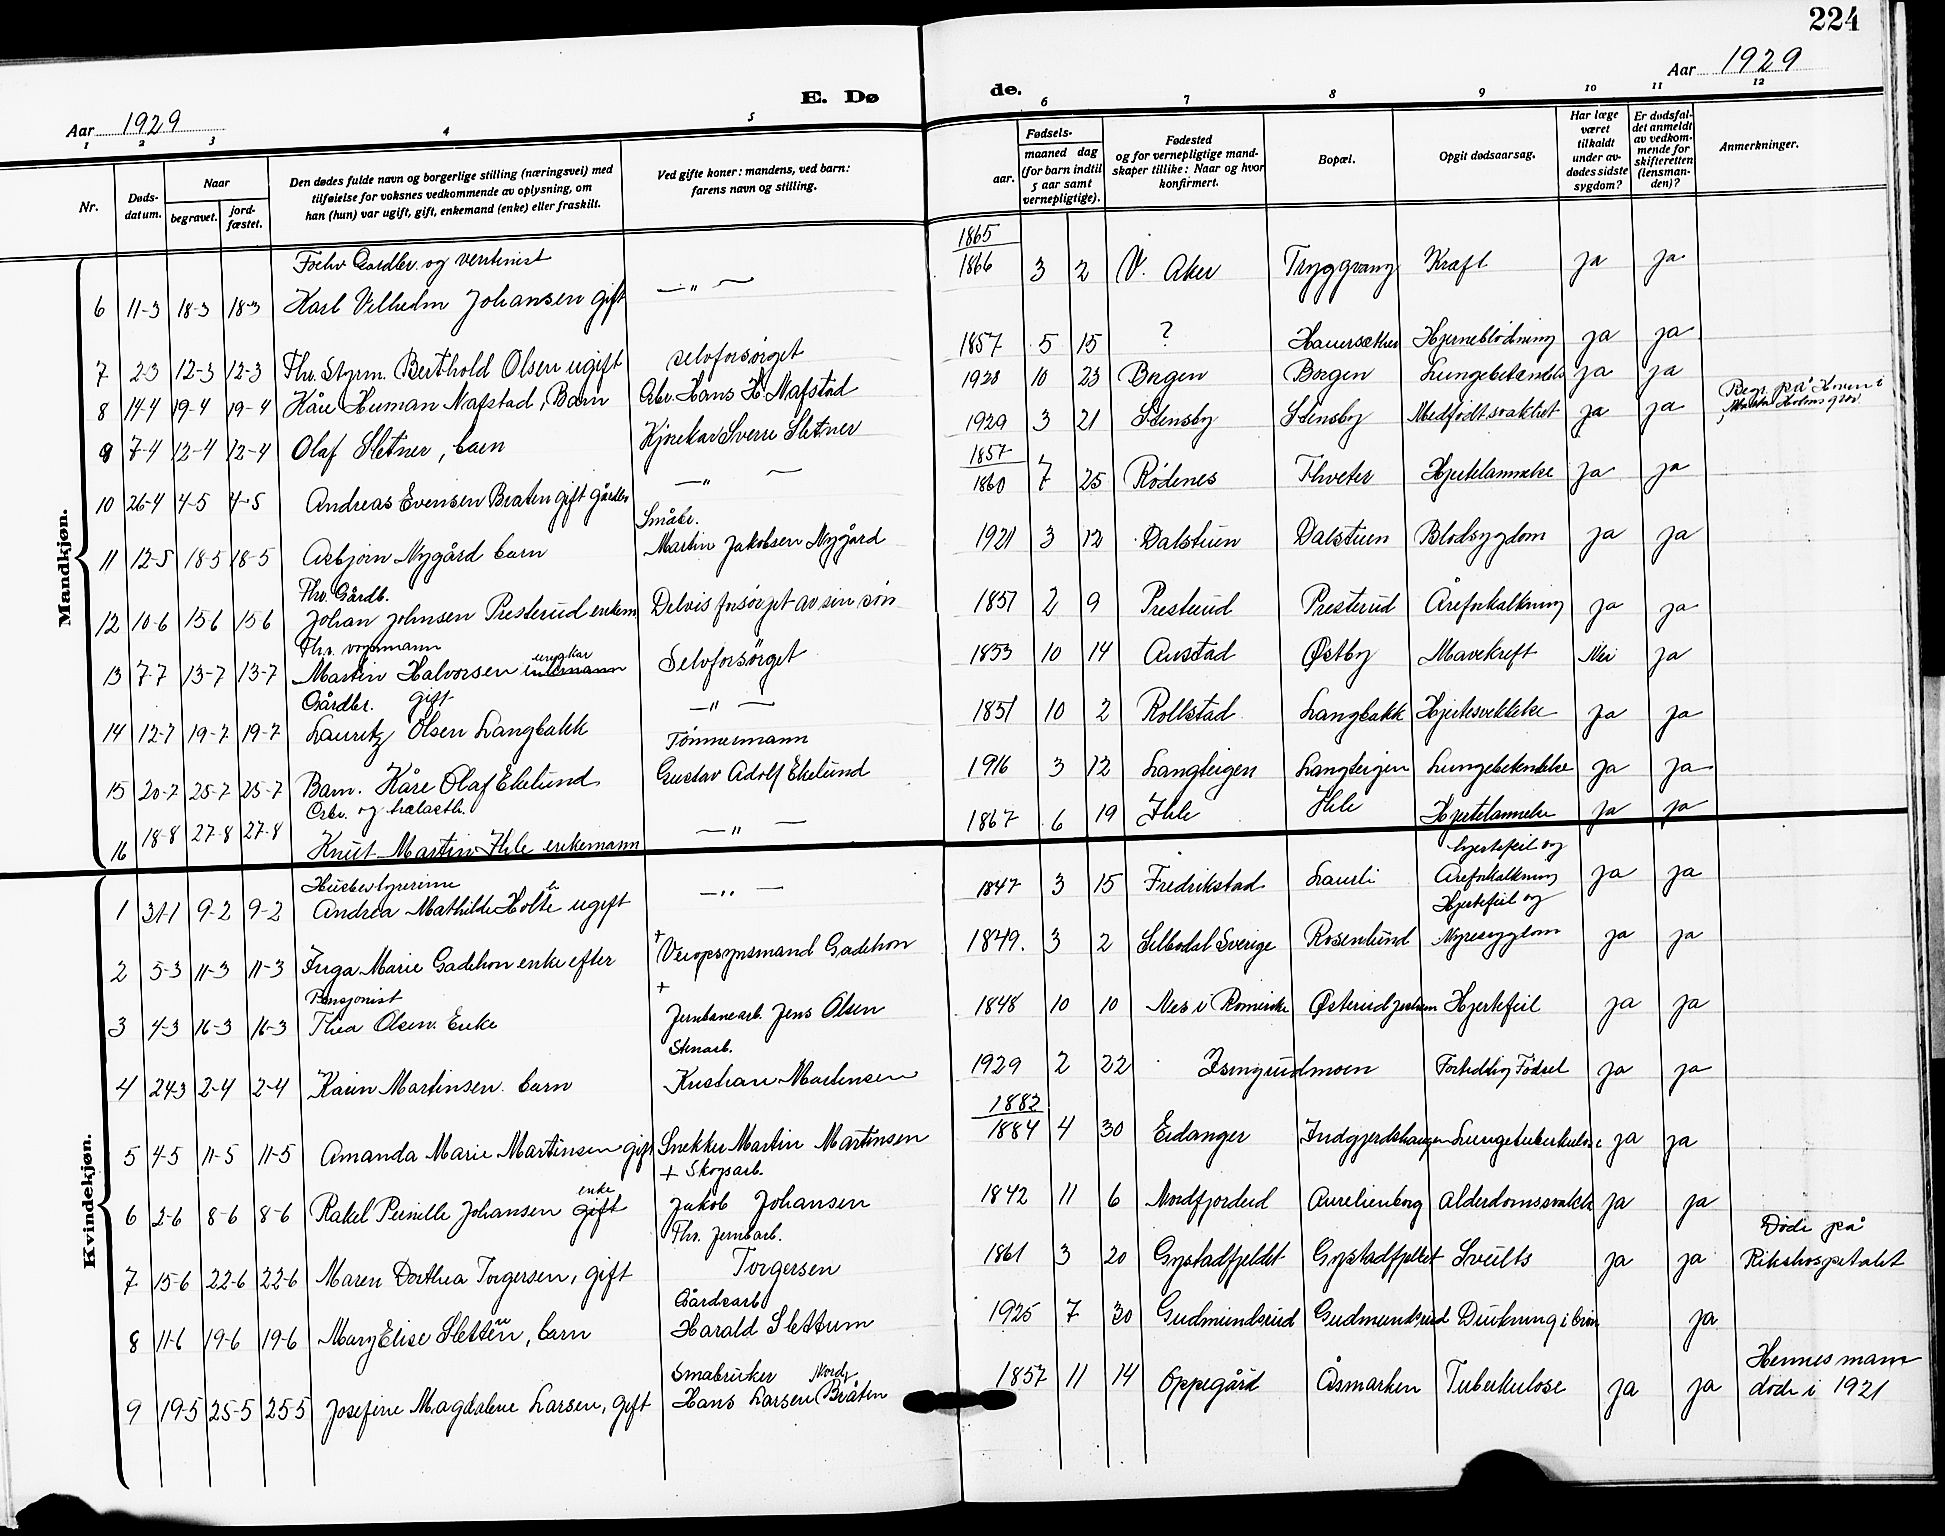 224
Aar 1929
Aar 1929
E. Dø
de.
1 2 3 4 5
6 7 8 9 10 11 12
Nr.
Døds-
datum.
Naar
begravet.
jord-
fæstet.
Den dødes fulde navn og borgerlige stilling (næringsvei) med
tilføielse for voksnes vedkommende av oplysning, om
han (hun) var ugift, gift, enkemand (enke) eller fraskilt.
Ved gifte koner: mandens, ved barn:
farens navn og stilling.
Fødsels-
aar.
maaned dag
(for barn indtil
5 aar samt
vernepligtige).
Fødested
og for vernepligtige mand-
skaper tillike: Naar og hvor
konfirmert.
Bopæl.
Opgit dødsaarsag.
Har læge
været
tilkaldt
under av-
dødes sidste
sygdom?
Er dødsfal-
det anmeldt
av vedkom-
mende for
skifteretten
(lensman-
den)?
Anmerkninger.
Mandkjøn.
Gardbr. og
1865
6 11-3 18-3 18-3 Karl Vilhelm Johansen gift — " — 1866 3 2 V. Aker Tryggvang Kræft ja ja
7 2-3 12-3 12-3 Fhv. Styrm. Berthold Olsen ugift selvforsørget 1857 5 15 ? Hauersæther Hjerneblødning ja ja
8 14-4 19-4 19-4 Kåre Herman Nafstad, Barn Arb. Hans H. Nafstad 1928 10 23 Borgen Borgen Lungebetændelse ja ja
9 7-4 12-4 12-4 Olaf Sletner, barn Kjørekar Sverre Sletner 1929 3 21 Stensby Stensby Medfødt svakhet ja ja
1857
10 26-4 4-5 4-5 Andreas Evensen Braten gift gårdbr — " — 1860 7 25 Rødenes Thveter Hjertelammelse ja ja
Småbr.
11 12-5 18-5 18-5 Asbjørn Nygård barn Martin Jakobsen Nygård 1921 3 12 Dalstuen Dalstuen Blodsygdom ja ja
Fhv. Gårdb.
12 10-6 15-6 15-6 Johan Johnsen Presterud enkem Delvis forsørget av sin søn 1851 2 9 Presterud Presterud Åreforkalkning ja ja
Fhv. vognmann
ungkar
13 7-7 13-7 13-7 Martin Halvorsen enkemann Selvforsørget 1853 10 14 Austad Østby Mavekreft Nei ja
Gårdbr. gift
14 12-7 19-7 19-7 Lauritz Olsen Langbakk — " — 1851 10 2 Rollstad Langbakk Hjertesvekkelse ja ja
Tømmermann
15 20-7 25-7 25-7 Barn. Kåre Olaf Ekelund Gustav Adolf Ekelund 1916 3 12 Langteigen Langteigen Lungebetendelse ja ja
16 18-8 27-8 27-8 Knut Martin Ihle enkemann — " — 1867 6 19 Ihle Ihle Hjertelammelse ja ja
Kvindekjøn.
Husbestyrerinne
hjertefeil og
1 31-1 9-2 9-2 Andrea Mathilde Holte ugift — " — 1847 3 15 Fredrikstad Laurli Åreforkalkning ja ja
Hjertefeil og
2 5-3 11-3 11-3 Inga Marie Gadehon enke efter + Veiopsynsmand Gadehon 1849. 3 2 Silbodal Sverige Rosenlund Nyresygdom ja ja
Pensjonist
+
3 4-3 16-3 16-3 Thea Olsen. Enke Jernbanearb. Jens Olsen 1848 10 10 Nes i Romerike Østerud Jessheim Hjertefeil ja ja
Stenarb.
4 24-3 2-4 2-4 Karin Martinsen. barn Kristian Martinsen 1929 2 22 Isingrudmoen Fortidlig Fødsel ja ja
1882
5 4-5 11-5 11-5 Amanda Marie Martinsen gift Snekker Martin Martinsen 1884 4 30 Eidanger Indgjerdshaugen Lungetuberkulose ja ja
+ Skogsarb.
enke
6 2-6 8-6 8-6 Rakel Pernille Johansen gift Jakob Johansen 1842 11 6 Nordfjordeid Aurelienborg Alderdomssvakhet ja ja
Fhv. Jernbarb.
Døde på
7 15-6 22-6 22-6 Maren Dorthea Torgersen, gift Torgersen 1861 3 20 Gystadfjeldet Gystadfjellet Svulst ja ja Rikshospetalet
Gårdsarb
8 11-6 19-6 19-6 Mary Elise Slettum, barn Harald Slettum 1925 7 30 Gudmundsrud Gudmundsrud Drukning i brønn ja
Småbruker Nordre
Hennes mann
9 19-5 25-5 25-5 Josefine Magdalene Larsen, gift Hans Larsen Bråten 1857 11 14 Oppegård Åsmarken Tuberkulose ja ja døde i 1921